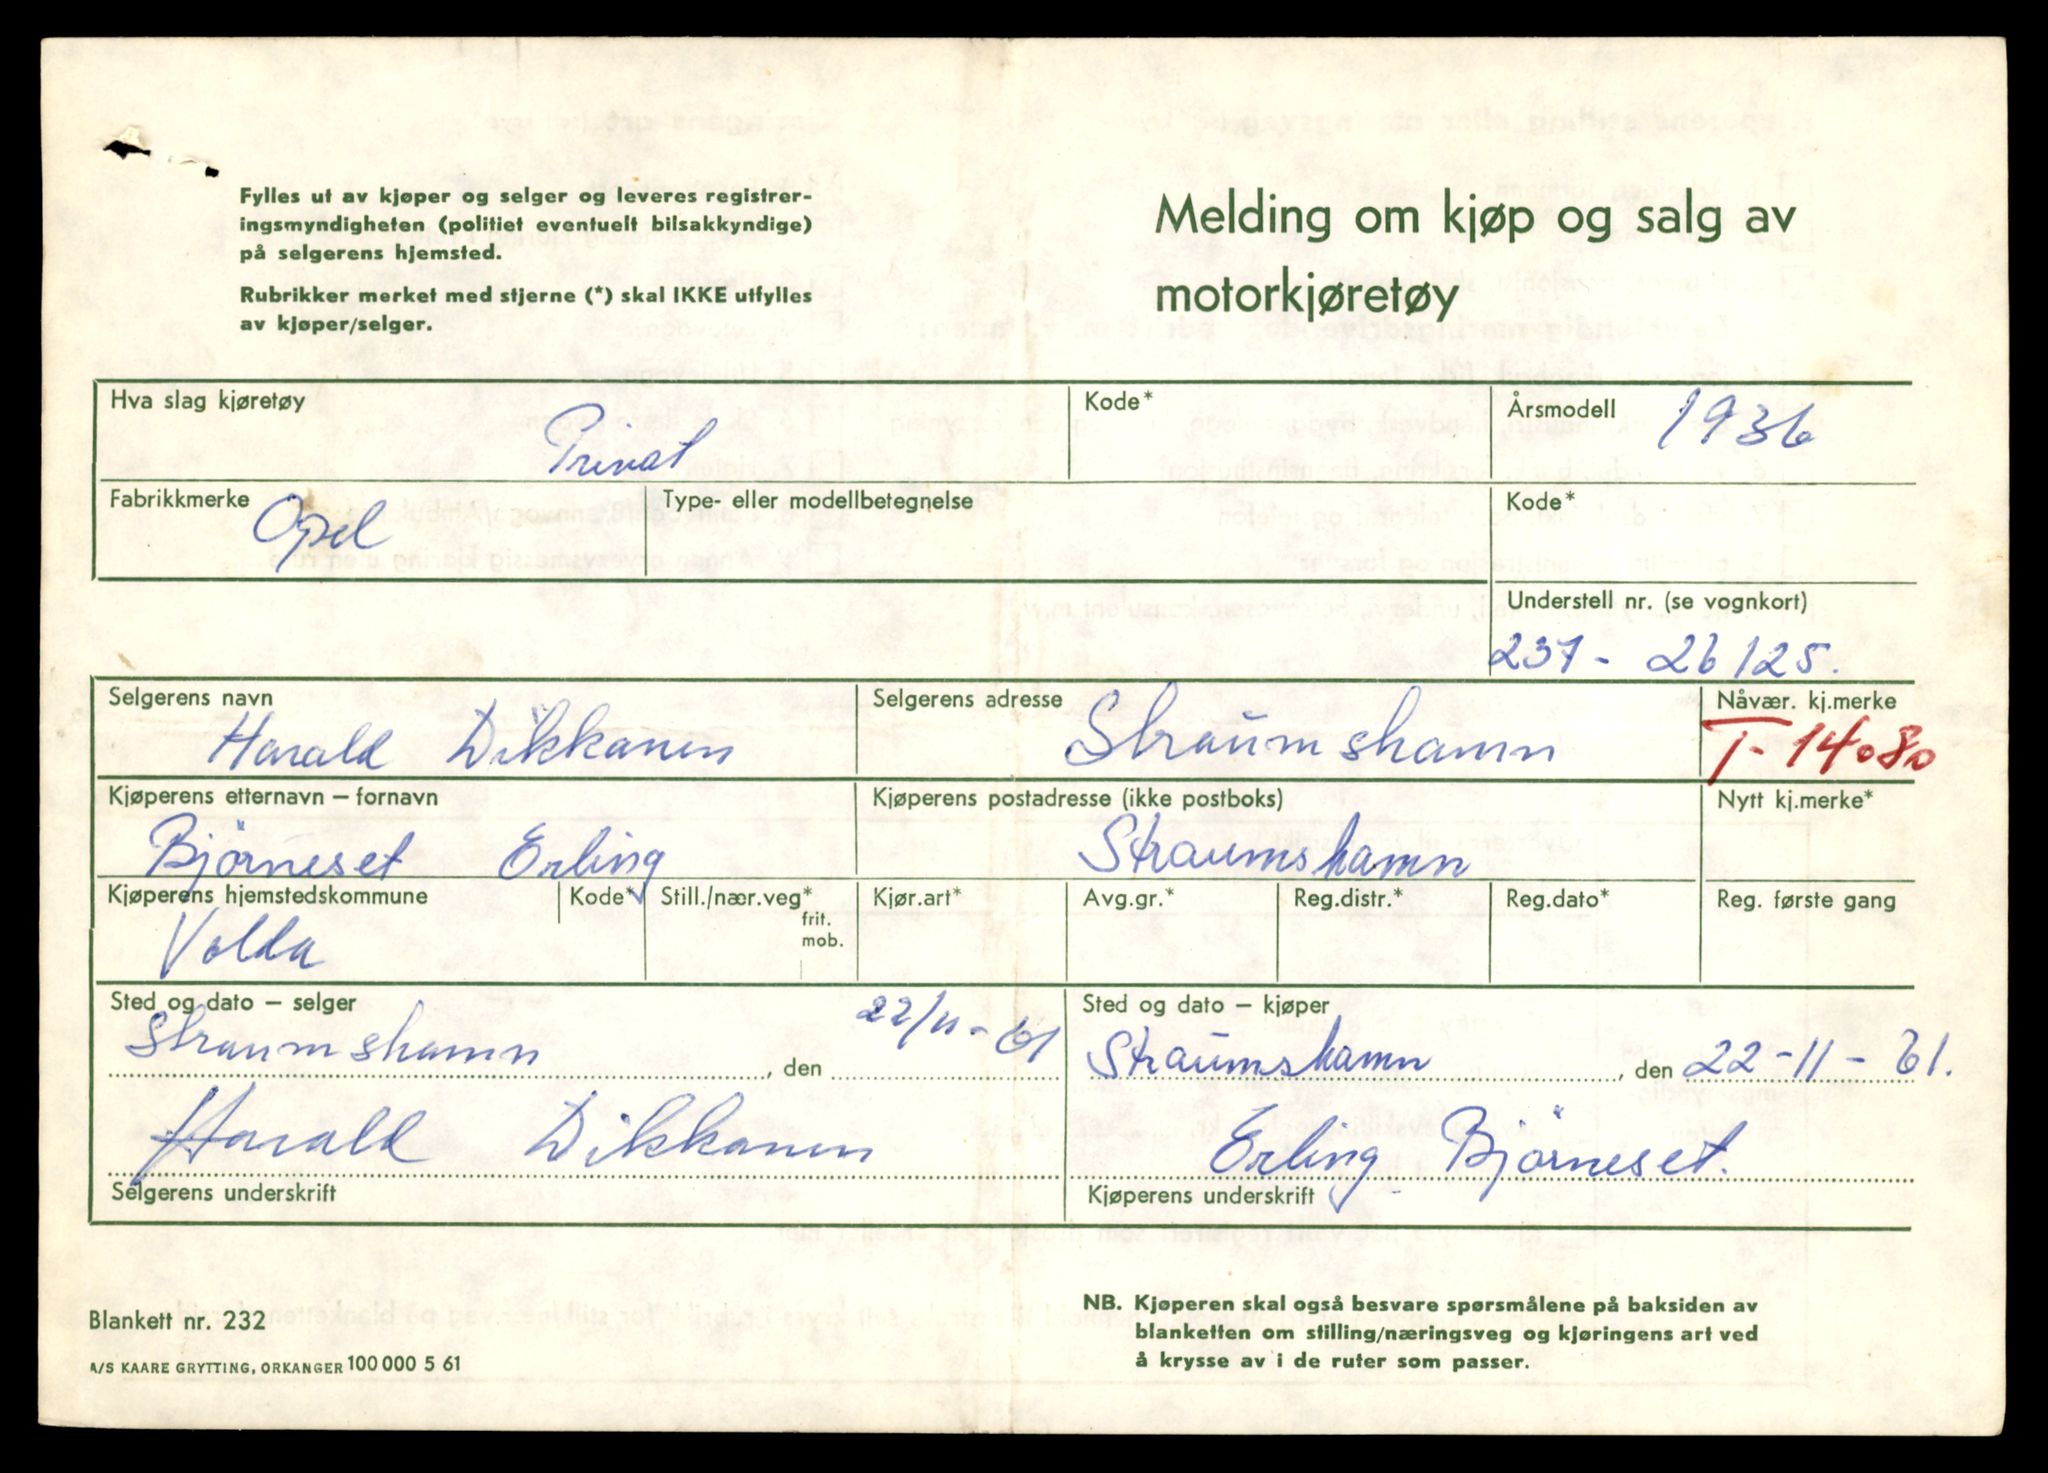 Fylles ut av kjøper og selger og leveres registrer-
ingsmyndigheten (politiet eventuelt bilsakkyndige)
på selgerens hjemsted.
Rubrikker merket med stjerne (*) skal IKKE utfylles
av kjøper/selger.
Melding om kjøp og salg av
motorkjøretøy
Hva slag kjøretøy
Privat
Kode*
Årsmodell
1936
Fabrikkmerke
Opel
Type- eller modellbetegnelse
Kode*
Understell nr. (se vognkort)
237 - 26125.
Selgerens navn
Harald Dikkanen
Selgerens adresse
Straumshamn
Nåvær. kj.merke
T-14080
Kjøperens etternavn – fornavn
Bjørneset Erling
Kjøperens postadresse (ikke postboks)
Straumshamn
Nytt kj.merke*
Kjøperens hjemstedskommune
Volda
Kode*
Still./nær.veg*
frit.
mob.
Kjør.art*
Avg.gr.*
Reg.distr.*
Reg.dato*
Reg. første gang
Sted og dato – selger
Straumshamn, den 22/11-61
Sted og dato – kjøper
Straumshamn, den 22-11-61.
Harald Dikkanen
Selgerens underskrift
Erling Bjørneset.
Kjøperens underskrift
Blankett nr. 232
A/S KAARE GRYTTING, ORKANGER 100 000 5 61
NB. Kjøperen skal også besvare spørsmålene på baksiden av
blanketten om stilling/næringsveg og kjøringens art ved
å krysse av i de ruter som passer.